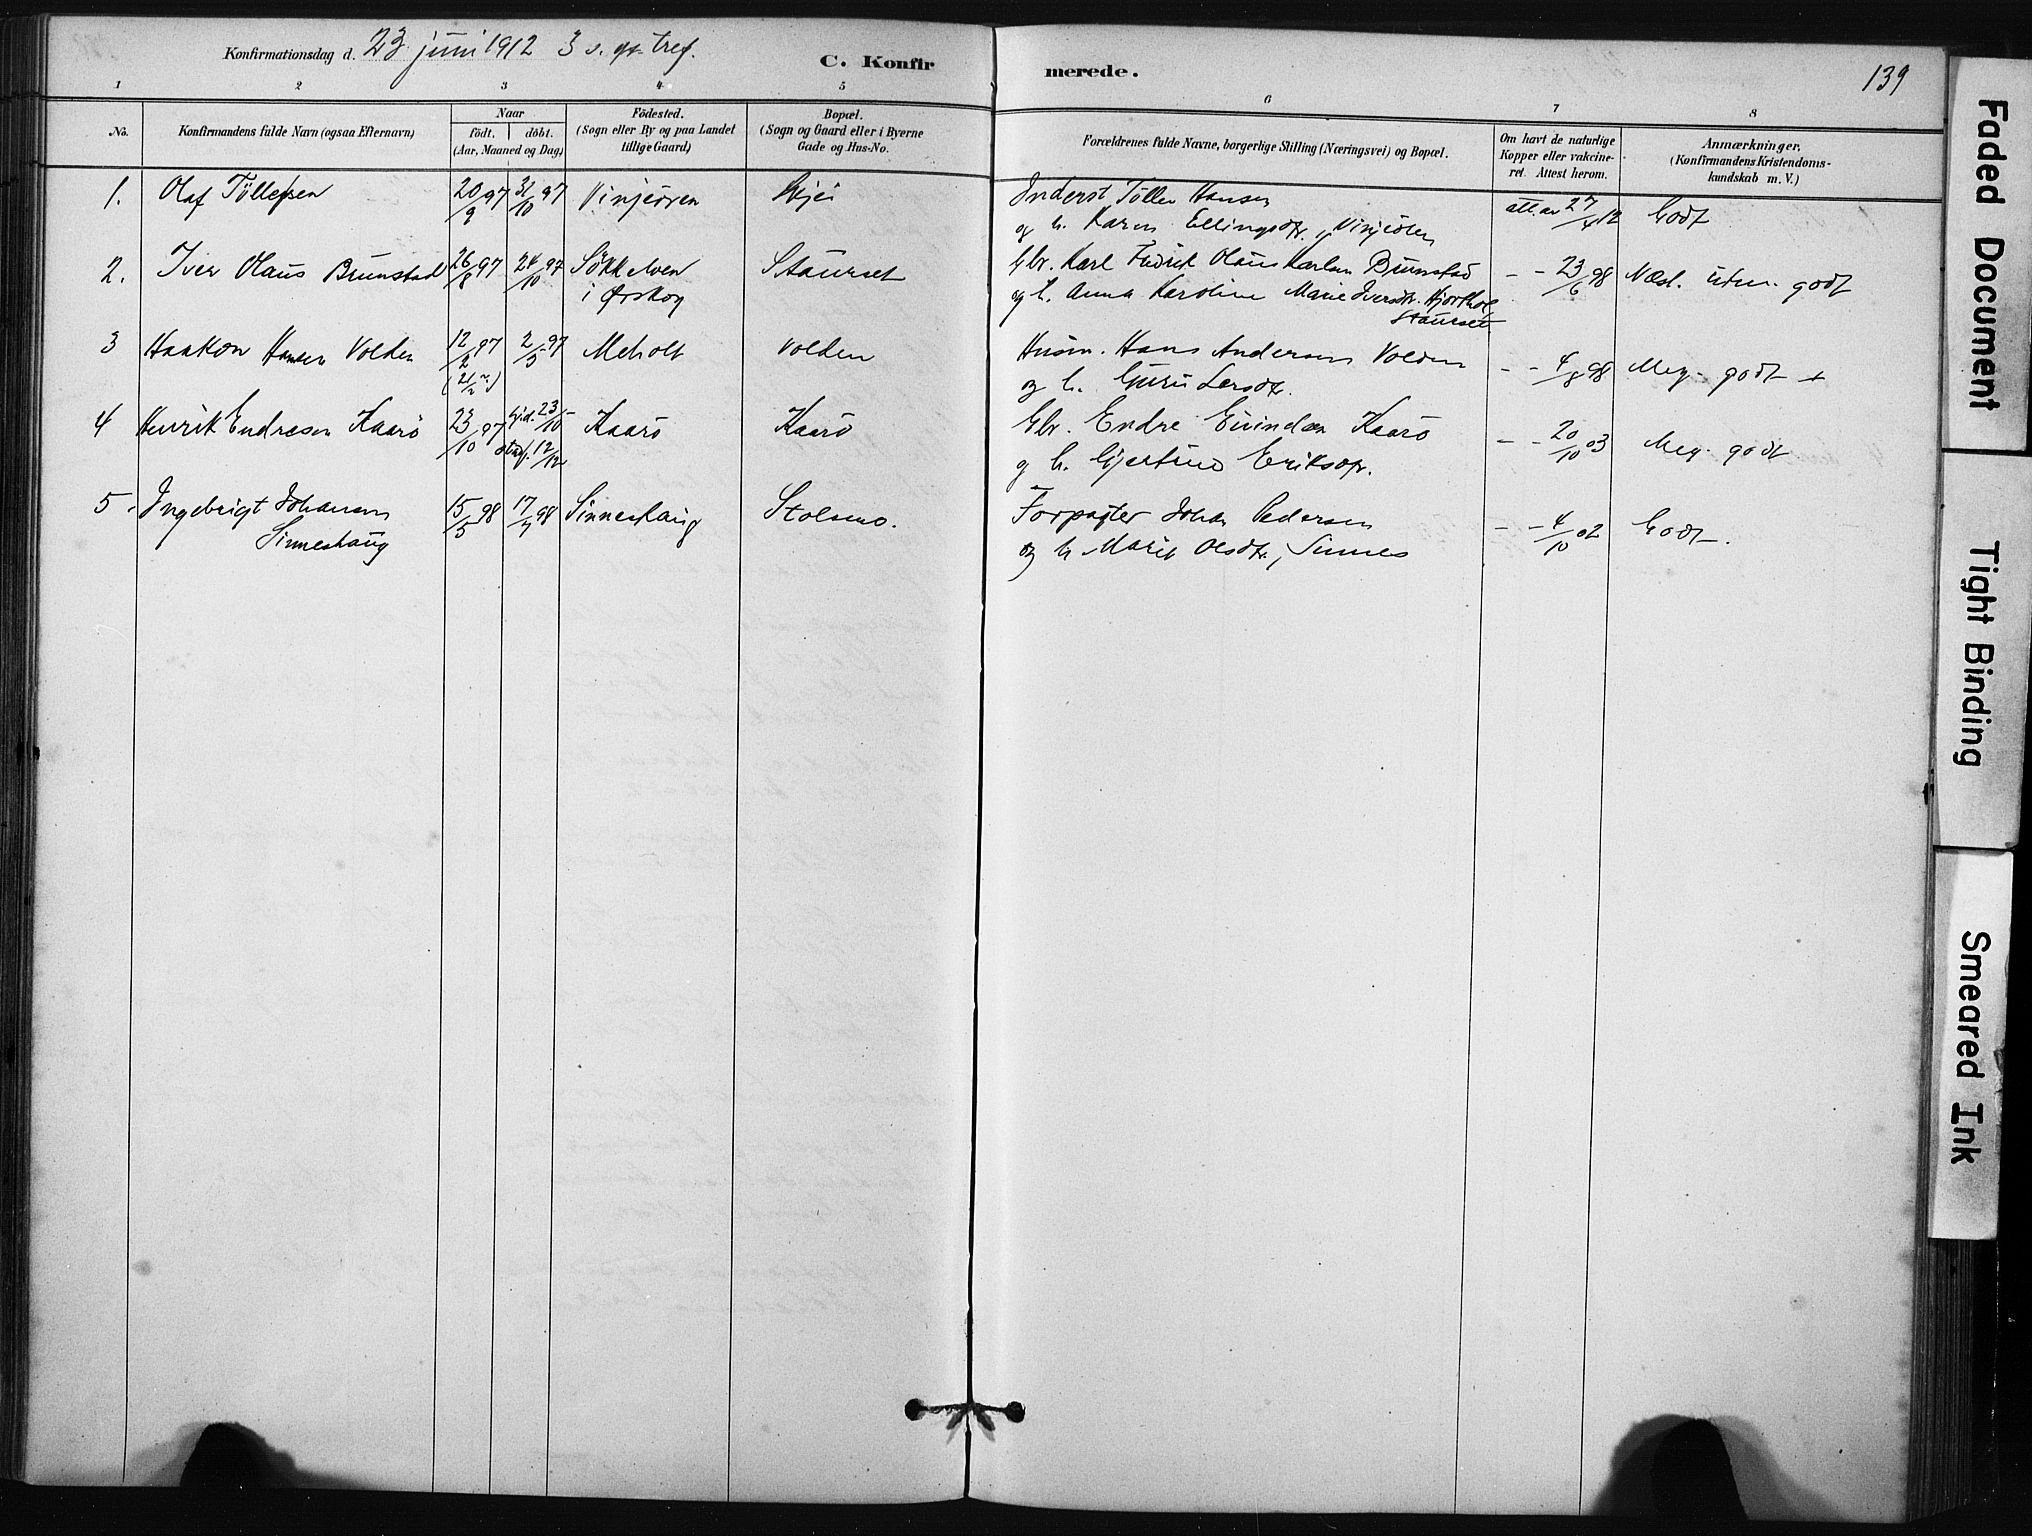 Konfirmationsdag d. 23 juni 1912 3 s. 
C. Konfirmerede.
139
1 2 3 4 5 6 7 8
No.
Konfirmandens fulde Navn (ogsaa Efternavn)
Naar
födt. döbt.
(Aar, Maaned og Dag)
Födested.
(Sogn eller By og paa Landet
tillige Gaard)
Bopæl.
(Sogn og Gaard eller i Byerne
Gade og Hus-No.
Forældrenes fulde Navne, borgerlige Stilling (Næringsvei) og Bopæl.
Om havt de naturlige
Kopper eller vakcine-
ret. Attest herom.
Anmærkninger.
(Konfirmandens Kristendoms-
kundskab m. V.)
1. Olaf Töllefsen 20/9 97 31/10 97 Vinjeören Inderst Töller Hansen att. av 27/4 12 Godt
og h. Karen Ellingsdtr., Vinjeören
2. Iver Olaus Brunstad 26/8 97 24/10 97 Søkkelven Staurset Gbr. Karl Fredrik Olaus Karlsen Brunstad - - 23/6 98 Næst. utm. godt
i Ørskog og h. Anna Karoline Marie Iversdtr. Hjorthol
Staurset
3 Haakon Hansen Volden 12/2 97 2/5 97 Meholt Volden Husm. Hans Andersen Volden - - 4/8 98 Meg. godt +
(21/2 ?) og h. Guru Larsdtr.
4 Henrik Endresen Kaarö 23/10 97 hjd. 23/10 - Kaarö Kaarö Gbr. Endre Eivindsen Kaarö - - 20/10 03 Meg. godt
stadf. 12/12 og h. Gjertine Eriksdtr.
5. Ingebrigt Johansen 15/5 98 17/7 98 Sinneshaug Stolsmo. Forpagter Johan Pedersen - - 4/10 02 Godt.
Sinneshaug og h Marit Olsdtr., Sinnes
Faded Document
Tight Binding
Smeared Ink